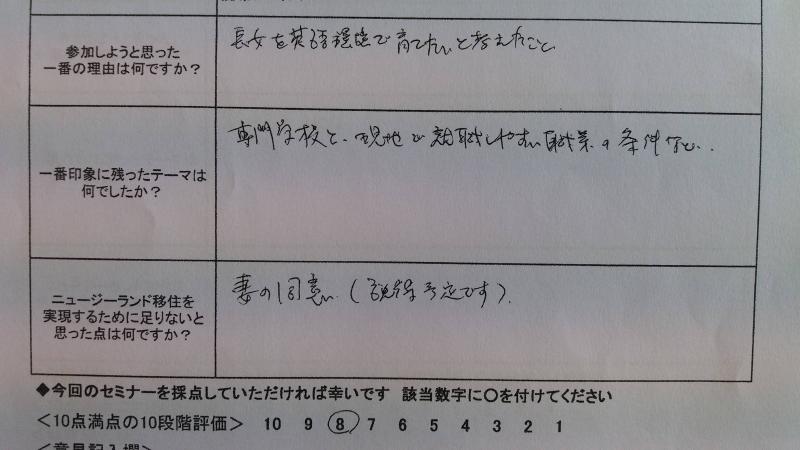 参加しようと思った
一番の理由は何ですか？
長女を英語環境で育てたいと考えたこと
一番印象に残ったテーマは
何でしたか？
専門学校と、現地で就職しやすい職業の条件など..
ニュージーランド移住を
実現するために足りないと
思った点は何ですか？
妻の同意（説得予定です）.
◆今回のセミナーを採点していただければ幸いです　該当数字に〇を付けてください
＜10点満点の10段階評価＞ 10 9 8 7 6 5 4 3 2 1
＜意見記入欄＞